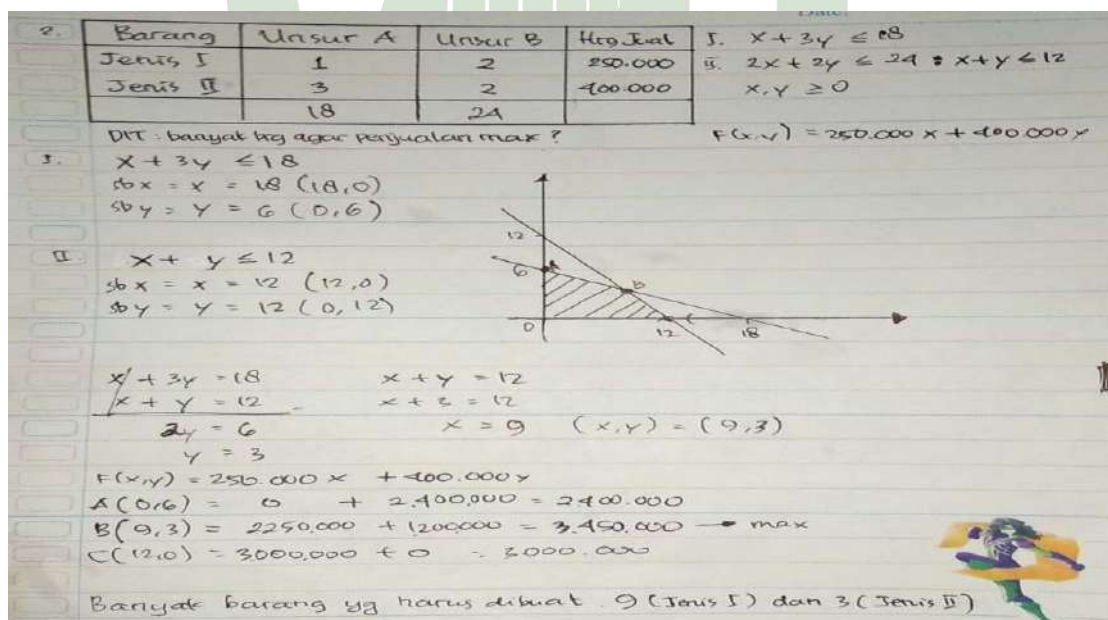 2.
Barang Unsur A Unsur B Hrg Jual
Jenis I 1 2 250.000
Jenis II 3 2 400.000
18 24
I. x + 3y ≤ 18
II. 2x + 2y ≤ 24 : x + y ≤ 12
x, y ≥ 0
DIT : banyak brg agar penjualan max ?
F(x,y) = 250.000 x + 400.000 y
I. x + 3y ≤ 18
sb x = x = 18 (18,0)
sb y = y = 6 (0,6)
II. x + y ≤ 12
sb x = x = 12 (12,0)
sb y = y = 12 (0,12)
12
6 A
B
0 12 C 18
x + 3y = 18
x + y = 12 -
2y = 6
y = 3
x + y = 12
x + 3 = 12
x = 9 (x,y) = (9,3)
F(x,y) = 250.000 x + 400.000 y
A(0,6) = 0 + 2.400.000 = 2400.000
B(9,3) = 2250.000 + 1200000 = 3.450.000 → max
C(12,0) = 3000.000 + 0 = 3000.000
Banyak barang yg harus dibuat 9 (Jenis I) dan 3 (Jenis II)